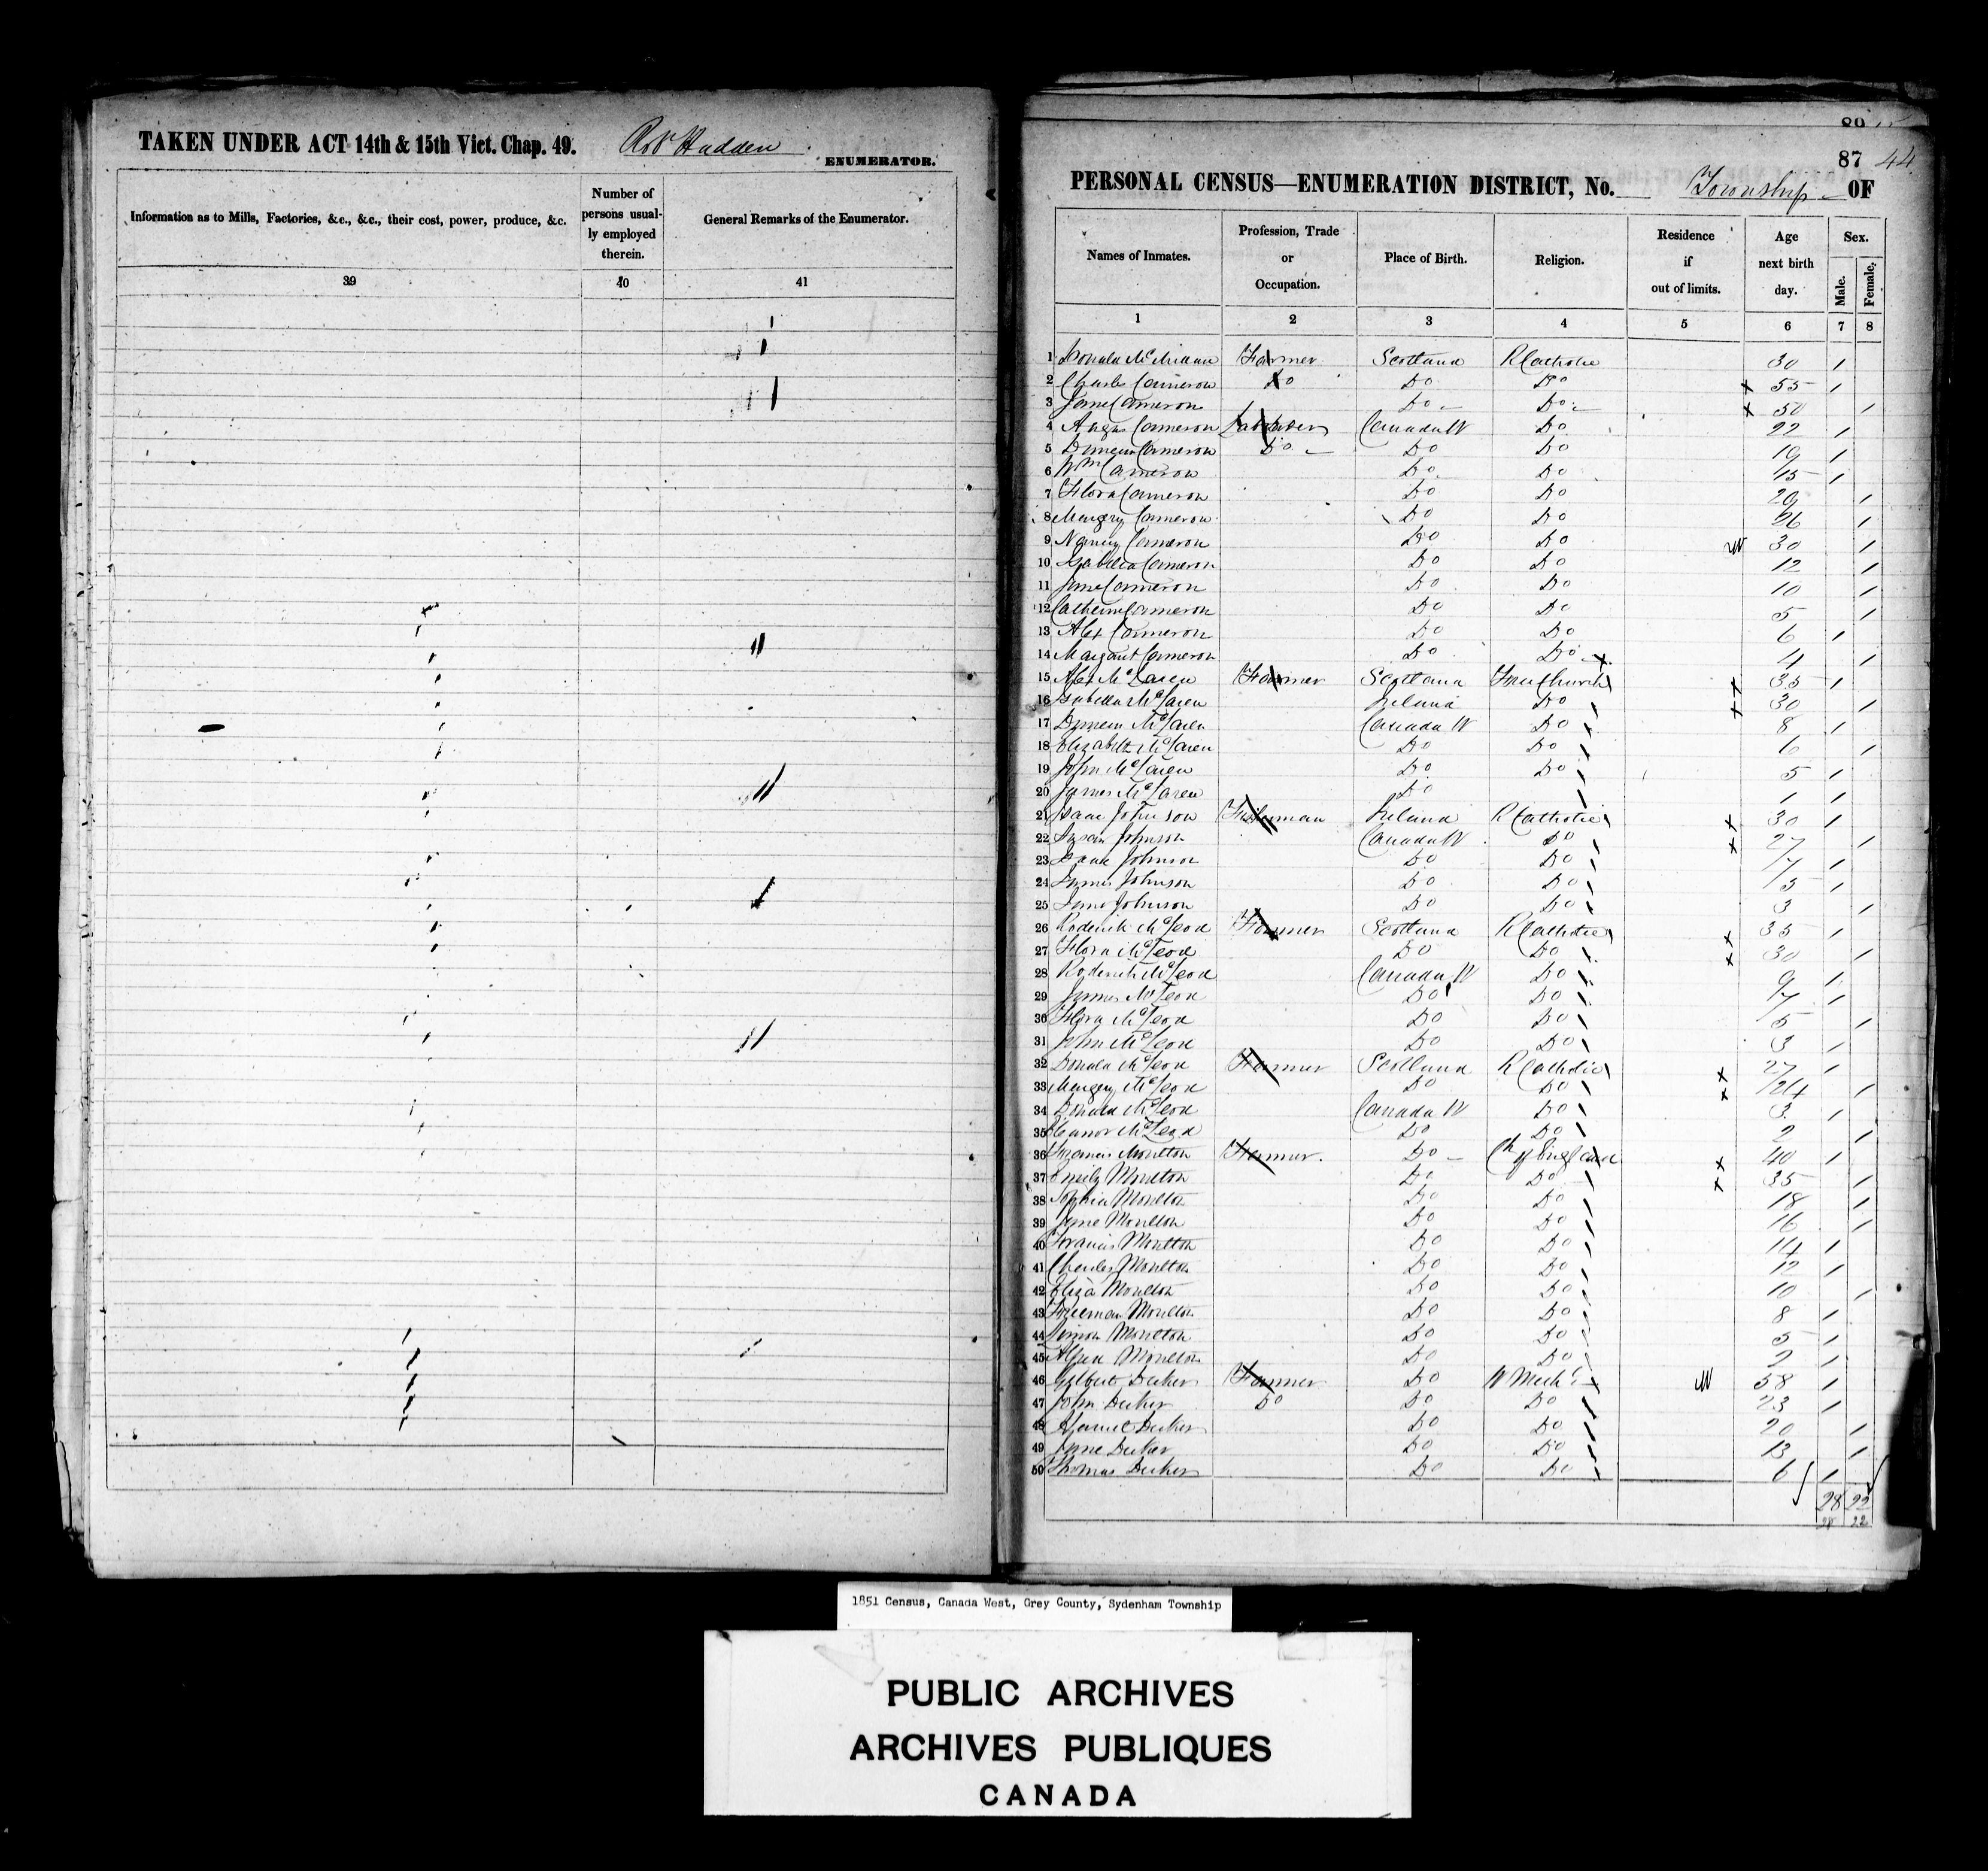 TAKEN UNDER ACT 14th & 15th Vict. Chap. 49. Robt Hadden ENUMERATOR.
Information as to Mills, Factories, &c., &c., their cost, power, produce, &c.
Number of persons usually employed therein.
General Remarks of the Enumerator.
39 40 41
89
87 44
PERSONAL CENSUS—ENUMERATION DISTRICT, No. Township OF
Names of Inmates.
Profession, Trade or Occupation.
Place of Birth.
Religion.
Residence if out of limits.
Age next birth day.
Sex.
Male. Female.
1 2 3 4 5 6 7 8
1 Donald McMillan Farmer Scotland R Catholic 30 1
2 Charles Cameron Do Do Do 55 1
3 Jane Cameron Do Do 50 1
4 Angus Cameron Labourer Canada W Do 22 1
5 Duncan Cameron Do Do Do 19 1
6 Wm Cameron Do Do 15 1
7 Flora Cameron Do Do 20 1
8 Margery Cameron Do Do 26 1
9 Nancy Cameron Do Do 30 1
10 Isabella Cameron Do Do 12 1
11 Jane Cameron Do Do 10 1
12 Catherine Cameron Do Do 5 1
13 Alex Cameron Do Do 6 1
14 Margaret Cameron Do Do 4 1
15 Alex McLaren Farmer Scotland Free Church 35 1
16 Isabella McLaren Ireland Do 30 1
17 Duncan McLaren Canada W Do 8 1
18 Elizabeth McLaren Do Do 6 1
19 John McLaren Do Do 5 1
20 James McLaren Do 1 1
21 Isaac Johnson Fisherman Ireland R Catholic 30 1
22 Susan Johnson Canada W Do 27 1
23 Isaac Johnson Do Do 7 1
24 James Johnson Do Do 5 1
25 Jane Johnson Do Do 3 1
26 Roderick McLeod Farmer Scotland R Catholic 35 1
27 Flora McLeod Do Do 30 1
28 Roderick McLeod Canada W Do 9 1
29 James McLeod Do Do 7 1
30 Flora McLeod Do Do 5 1
31 John McLeod Do Do 3 1
32 Donald McLeod Farmer Scotland R Catholic 27 1
33 Margery McLeod Do Do 24 1
34 Donald McLeod Canada W Do 3 1
35 Eleanor McLeod Do Do 2 1
36 Francis Moulton Farmer Do Ch of England 40 1
37 Emily Moulton Do Do 35 1
38 Sophia Moulton Do Do 18 1
39 Jane Moulton Do Do 16 1
40 Francis Moulton Do Do 14 1
41 Charles Moulton Do Do 12 1
42 Eliza Moulton Do Do 10 1
43 Freeman Moulton Do Do 8 1
44 Simon Moulton Do Do 5 1
45 Alfred Moulton Do Do 2 1
46 Gilbert Decker Farmer Do W Meth 58 1
47 John Decker Do Do Do 23 1
48 Decker Do Do 20 1
49 Jane Decker Do Do 13 1
50 Thomas Decker Do Do 6 1
28 22
28 22
1851 Census, Canada West, Grey County, Sydenham Township
PUBLIC ARCHIVES
ARCHIVES PUBLIQUES
CANADA